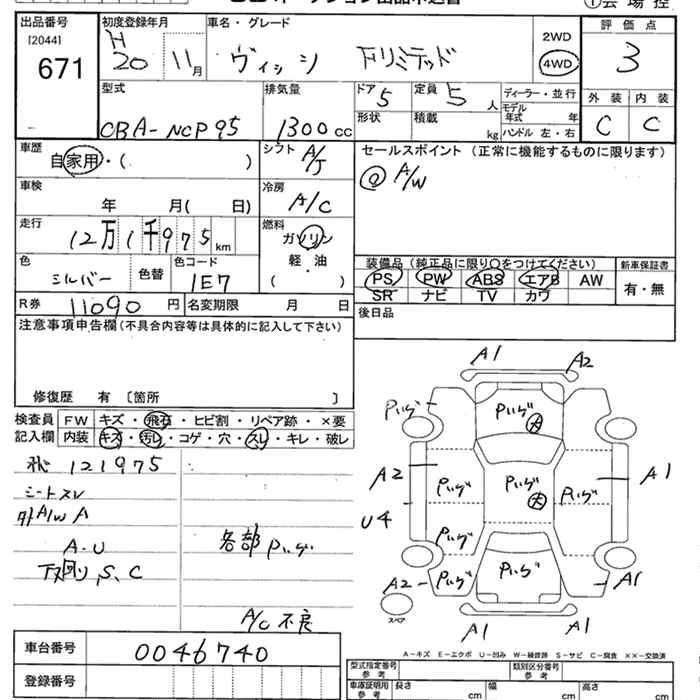 オークション出品申込書
①会場控
出品番号 初度登録年月 車名・グレード 評価点
[2044] 671
H20 11月 ヴィッツ Fリミテッド 2WD 4WD 3
型式 CBA-NCP95 排気量 1300cc ドア 5 定員 5人 ディーラー・並行
外装 内装
形状 積載 kg モデル年式 年
ハンドル 左・右
C C
車歴 自家用・( ) シフト A/T セールスポイント (正常に機能するものに限ります)
A/W
車検 年 月( 日) 冷房 A/C
走行 12万1千975km 燃料 ガソリン
軽・油
( )
色 シルバー 色替 色コード 1E7
装備品(純正品に限り〇をつけてください) 新車保証書
PS PW ABS エアB AW 有・無
SR ナビ TV カワ
R券 11090円 名変期限 月 日
後日品
注意事項申告欄(不具合内容等は具体的に記入して下さい)
修復歴 有 〔箇所 〕
検査員 FW キズ・飛石・ヒビ割・リペア跡・×要
記入欄 内装 キズ・汚レ・コゲ・穴・スレ・キレ・破レ
121975
シートスレ
外A/W A
A.U
下回り,S.C
各部 Pいげ
A/C 不良
A1 A2
Pいげ Pいげ 大
A2 Pいげ Pいげ 大 Pいげ A1
U4
Pいげ
A2 Pいげ Pいげ A1
スペア
A1 A1
A-キズ E-エクボ U-凹み W-補修跡 S-サビ C-腐食 ××-交換済
車台番号 0046740
登録番号
型式指定番号 参考 類別区分番号 参考
車庫証明用 参考 長さ cm 幅 cm 高さ